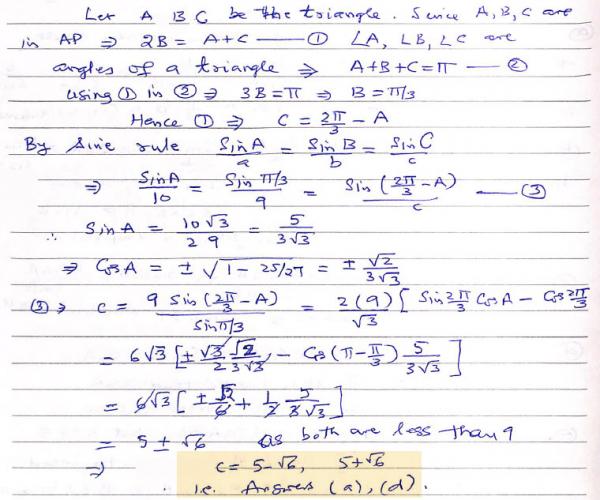 Let A B C be the triangle. Since A, B, C are
in AP ⇒ 2B = A+C —— ① ∠A, ∠B, ∠C are
angles of a triangle ⇒ A+B+C = π — ②
Using ① in ② ⇒ 3B = π ⇒ B = π/3
Hence ① ⇒ C = 2π/3 - A
By Sine rule Sin A/a = Sin B/b = Sin C/c
⇒ Sin A/10 = Sin π/3/9 = Sin (2π/3 - A)/c —— ③
∴ Sin A = 10√3/2 9 = 5/3√3
⇒ Cos A = ± √1 - 25/27 = ± √2/3√3
③ ⇒ c = 9 Sin (2π/3 - A)/Sin π/3 = 2(9)/√3 [ Sin 2π/3 Cos A - Cos 2π/3
= 6√3 [ ± √3/2 √2/3√3 - Cos (π - π/3) 5/3√3 ]
= 6√3 [ ± √2/6 + 1/2 5/3√3 ]
= 5 ± √6 as both are less than 9
⇒ c = 5-√6, 5+√6
i.e. Answers (a), (d).